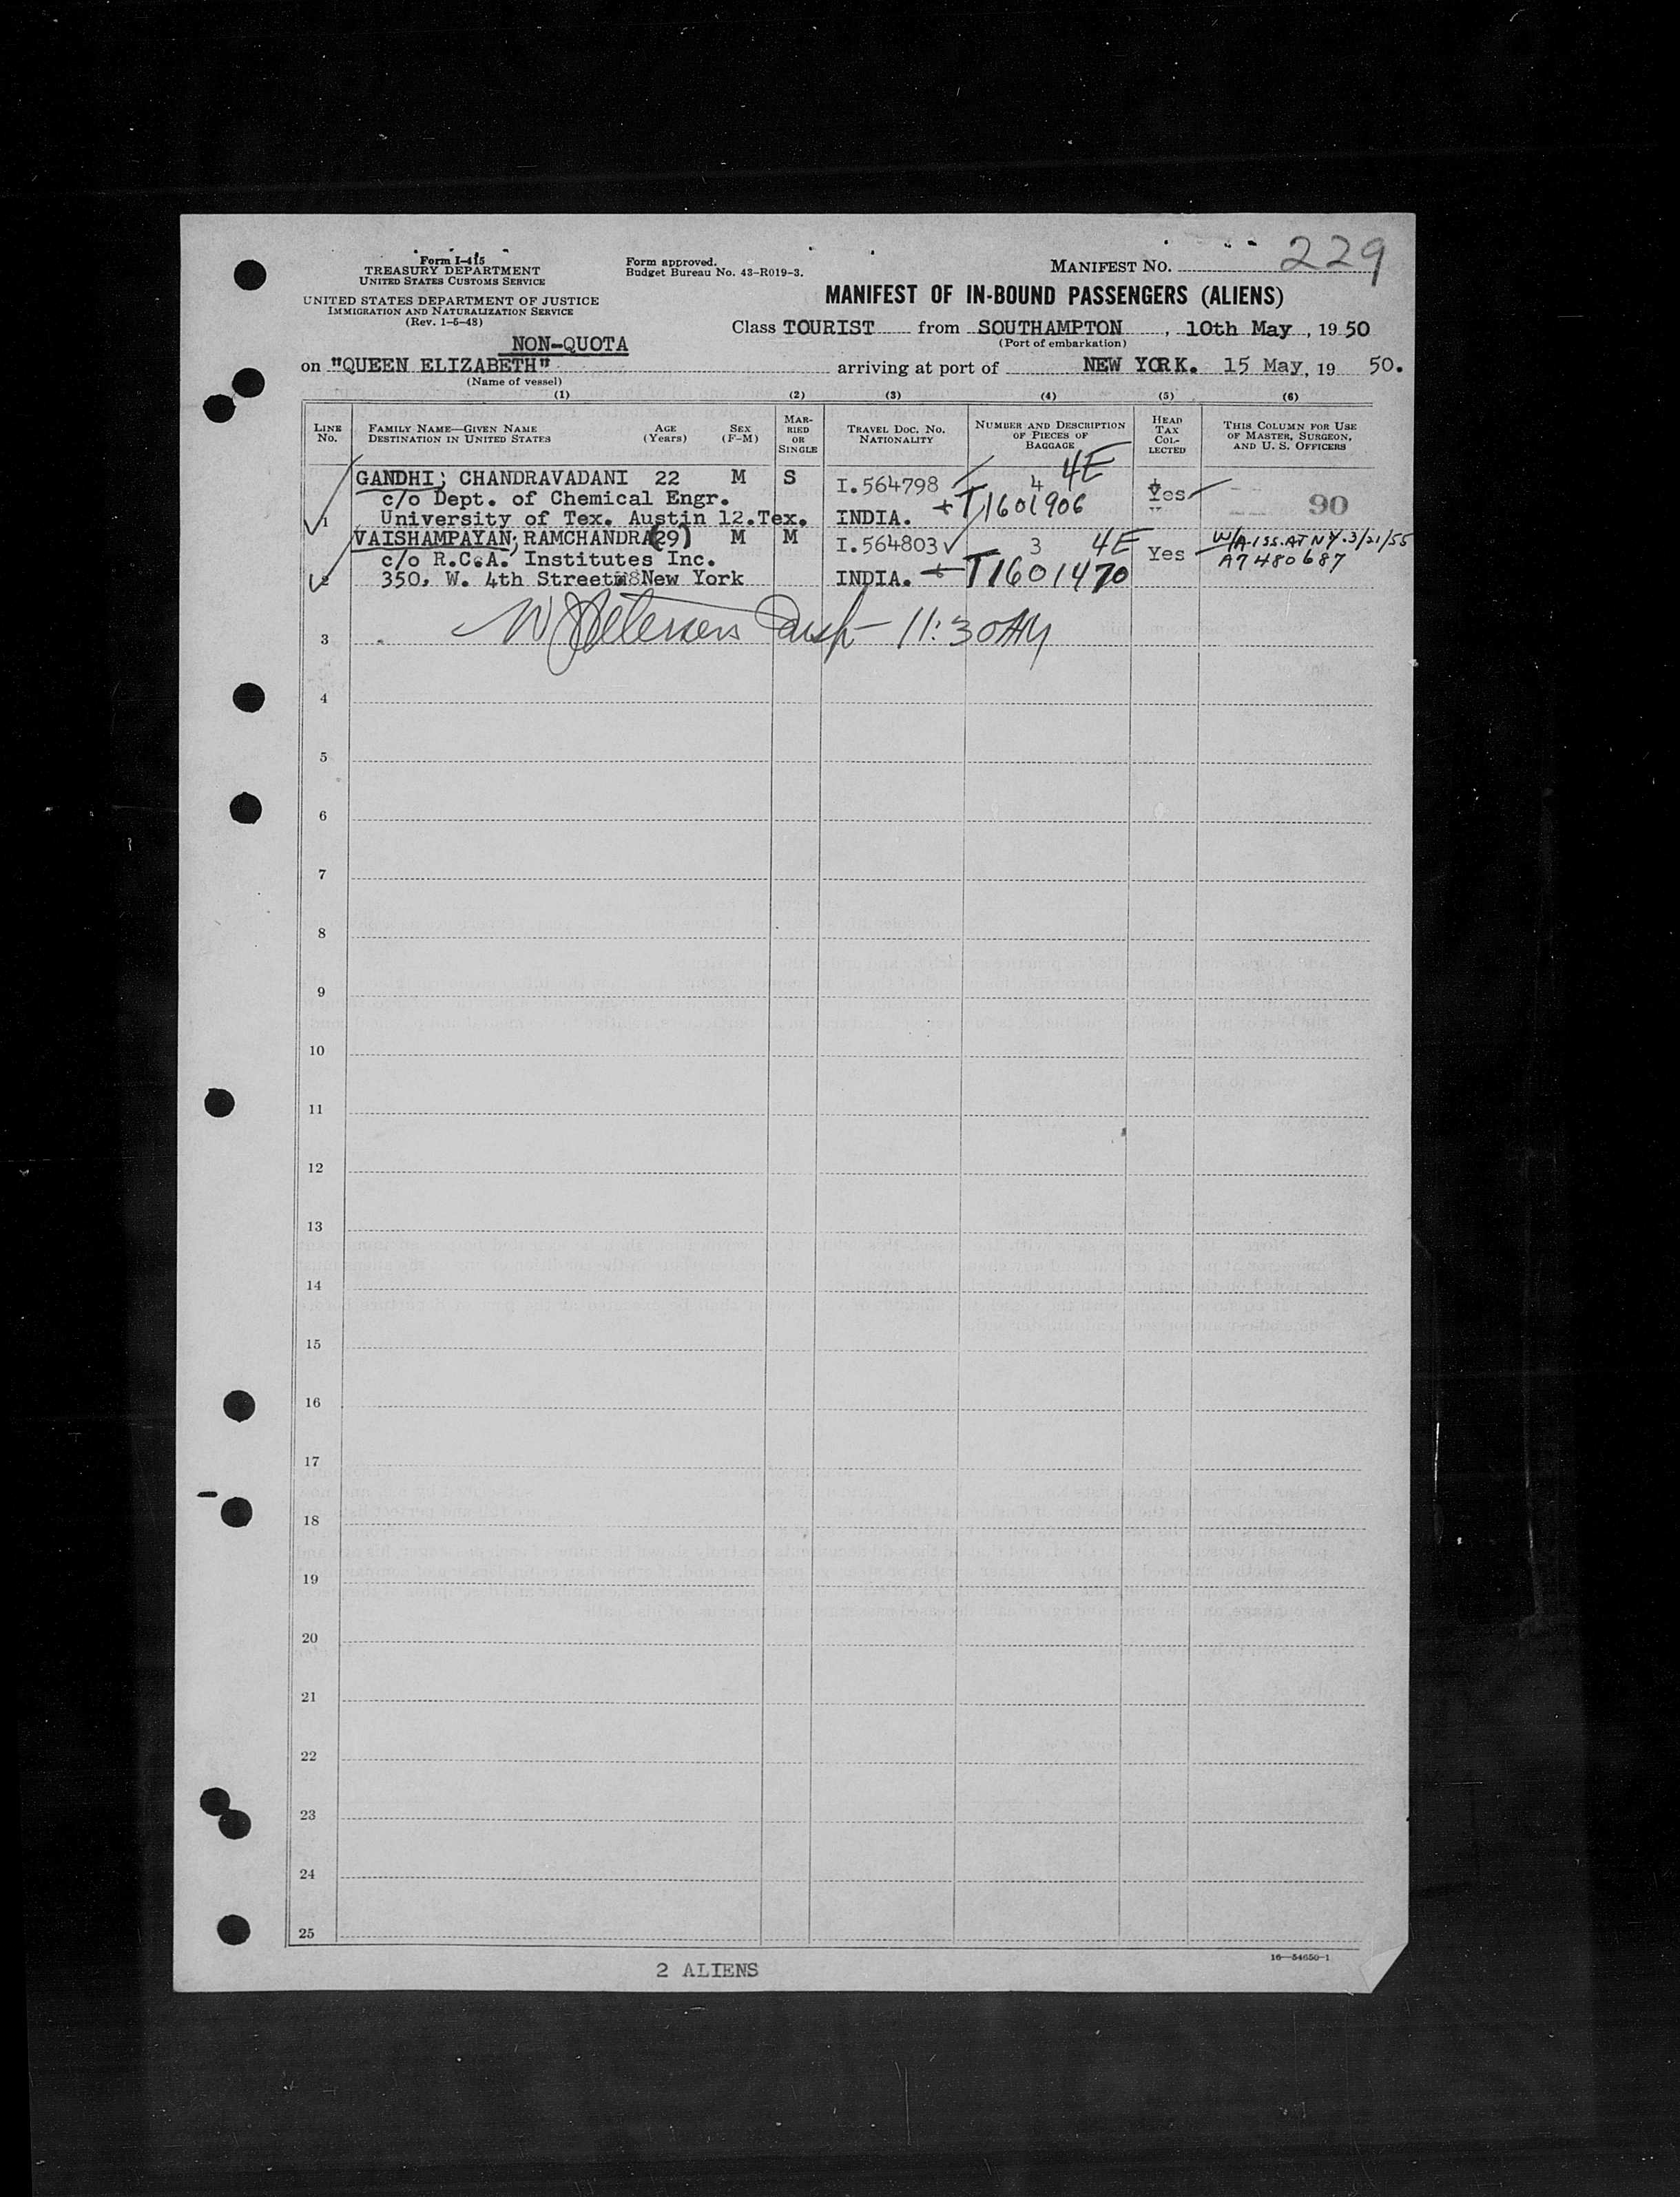 Form I-415
TREASURY DEPARTMENT
UNITED STATES CUSTOMS SERVICE
UNITED STATES DEPARTMENT OF JUSTICE
IMMIGRATION AND NATURALIZATION SERVICE
(Rev. 1-5-48)
Form approved.
Budget Bureau No. 43-R019-3.
MANIFEST NO. 229
MANIFEST OF IN-BOUND PASSENGERS (ALIENS)
Class TOURIST from SOUTHAMPTON, 10th May, 19 50
(Port of embarkation)
NON-QUOTA
on "QUEEN ELIZABETH" arriving at port of NEW YORK. 15 May, 19 50.
(Name of vessel)
(1) (2) (3) (4) (5) (6)
LINE NO. FAMILY NAME—GIVEN NAME DESTINATION IN UNITED STATES AGE (Years) SEX (F-M) MARRIED OR SINGLE TRAVEL DOC. NO. NATIONALITY NUMBER AND DESCRIPTION OF PIECES OF BAGGAGE HEAD TAX COLLECTED THIS COLUMN FOR USE OF MASTER, SURGEON, AND U. S. OFFICERS
GANDHI; CHANDRAVADANI 22 M S I.564798 4 4E Yes 90
c/o Dept. of Chemical Engr.
1 University of Tex. Austin 12.Tex. INDIA. T1601906
VAISHAMPAYAN; RAMCHANDRA (29) M M I.564803 3 4E Yes W/A ISS. AT N.Y. 3/21/55
c/o R.C.A. Institutes Inc. A7480687
2 350, W. 4th Street New York INDIA. T1601470
11:30AM
3
4
5
6
7
8
9
10
11
12
13
14
15
16
17
18
19
20
21
22
23
24
25
16—54650-1
2 ALIENS